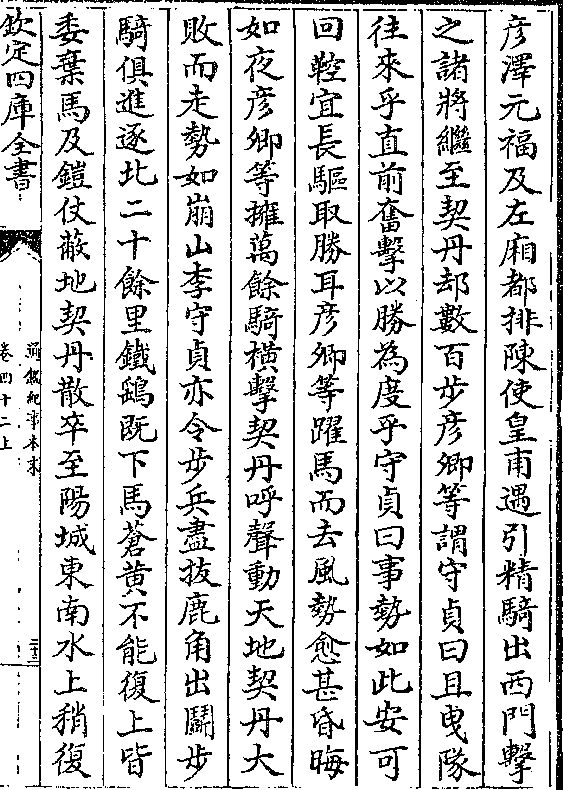 彥澤元福及左廂都排陳使皇甫遇引精騎出西門擊
之諸將繼至契丹却數百步彥卿等謂守貞曰且曳隊
往來乎直前奮擊以勝為度乎守貞曰事勢如此安可
回鞚宜長驅取勝耳彥卿等躍馬而去風勢愈甚昏晦
如夜彥卿等擁萬餘騎橫擊契丹呼聲動天地契丹大
敗而走勢如崩山李守貞亦令步兵盡拔鹿角出鬭步
騎俱進逐北二十餘里鐵鷂既下馬蒼黃不能復上皆
委棄馬及鎧仗蔽地契丹散卒至陽城東南水上稍復
欽定四庫全書
通鑑紀事本末
卷四十二上